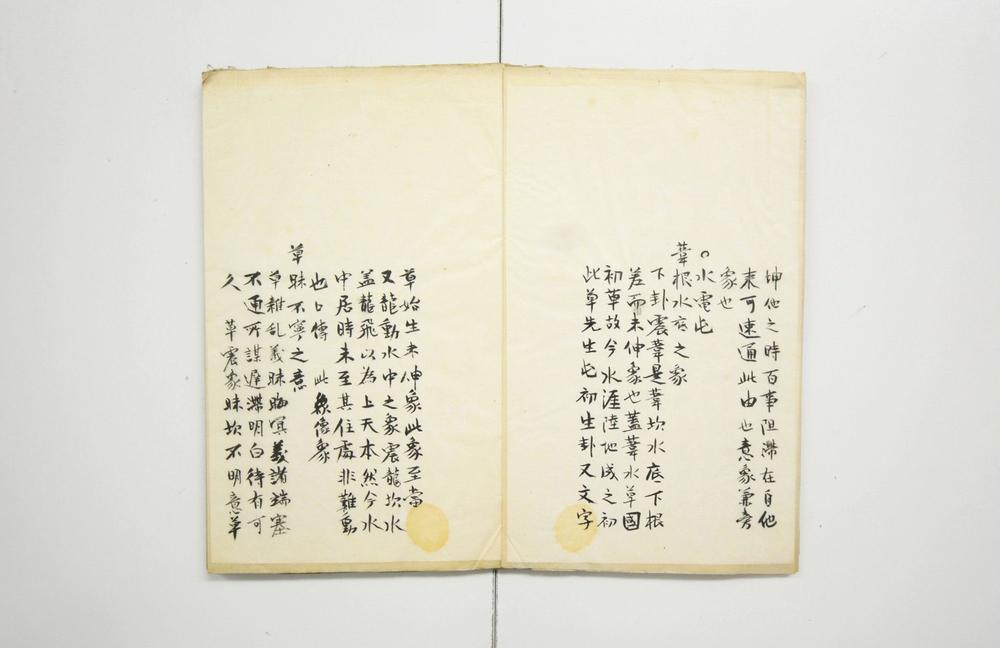 坤他之時百事阻滞在自他
来可速通此由也意象兼考
象也
○水電屯
葦根水底之象
下卦震葦是葦坎水底下根
差而未伸象也蓋葦水草國
初草故今水涯陸地成之初
此草先生屯初生卦又文字
草始生未伸象此象至當
又龍動水中之象震龍坎水
盖龍飛以為上天本然今水
中居時未至其住處非難動
也口傳 此象像象
草昧不寧之意
草雜乱義昧晦冥義諸端塞
不通所謀遅滞明白待有可
久 草震象昧坎不明意草